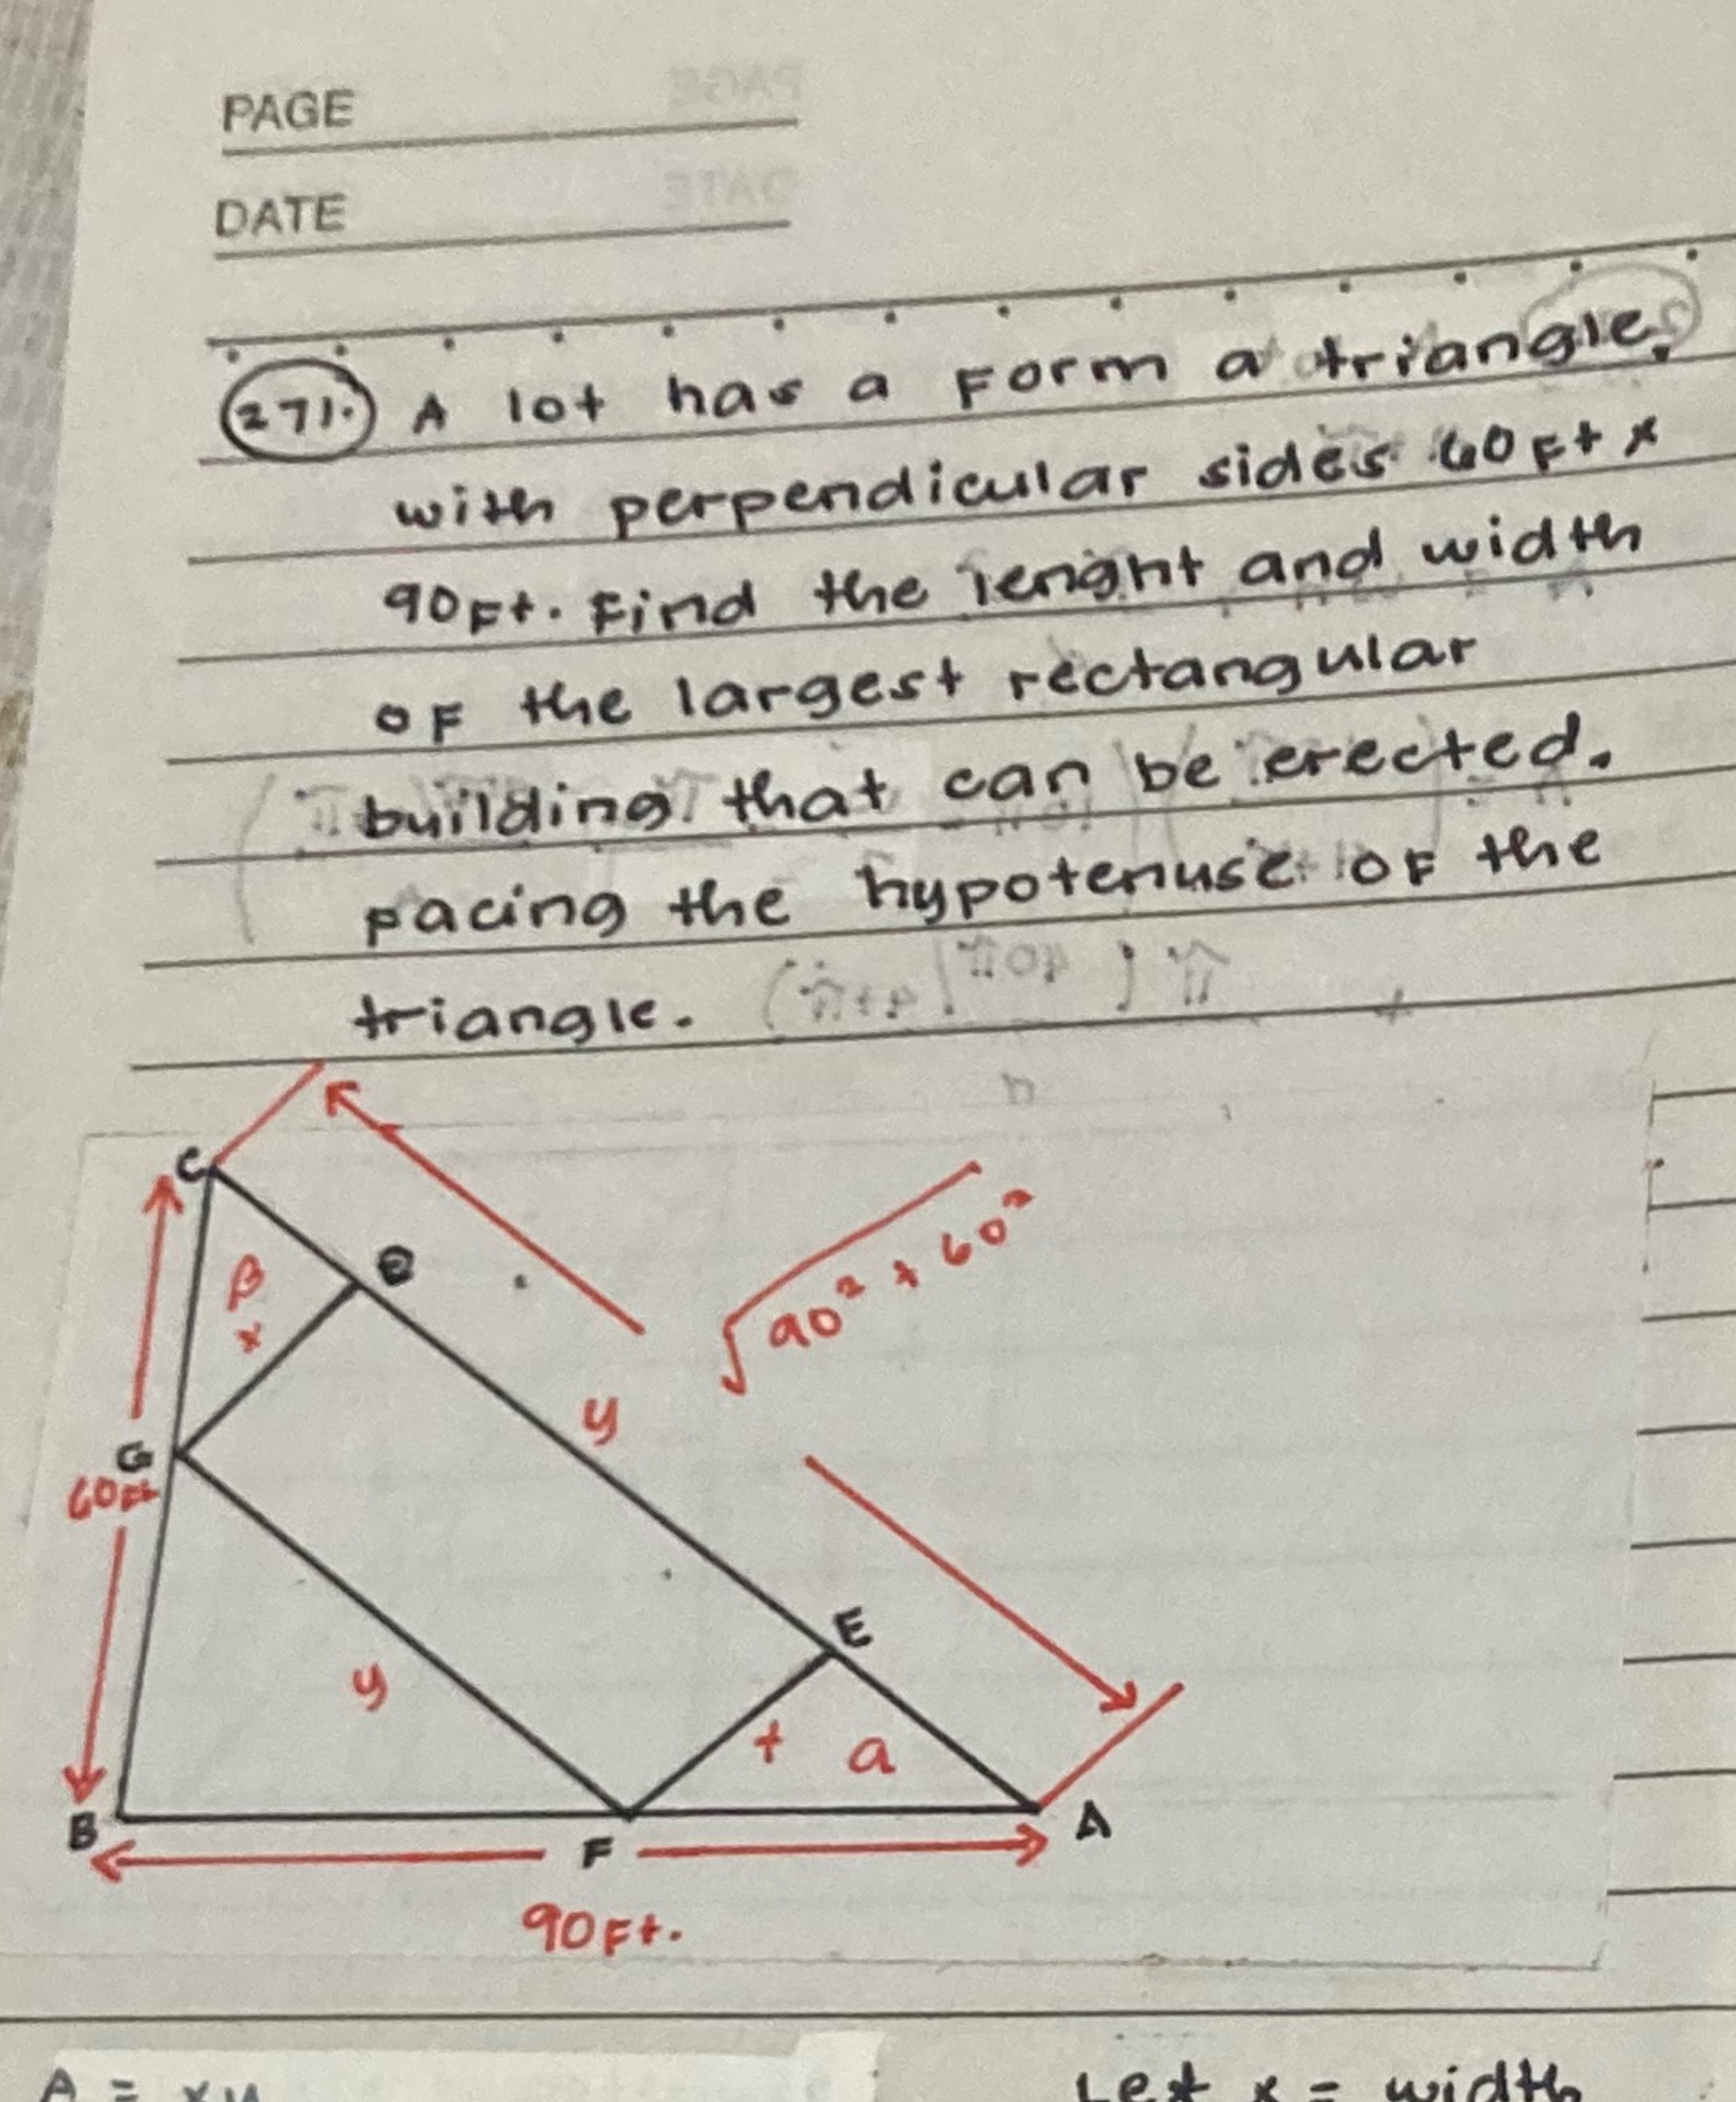 PAGE
DATE
271. A lot has a form a triangle,
with perpendicular sides 60 ft x
90 ft. Find the lenght and width
of the largest rectangular
building that can be erected.
facing the hypotenuse of the
triangle.
C
β
x
D
√90² + 60²
y
G
60 ft
E
y
x
a
B
F
A
90 ft.
A = xy
Let x = width